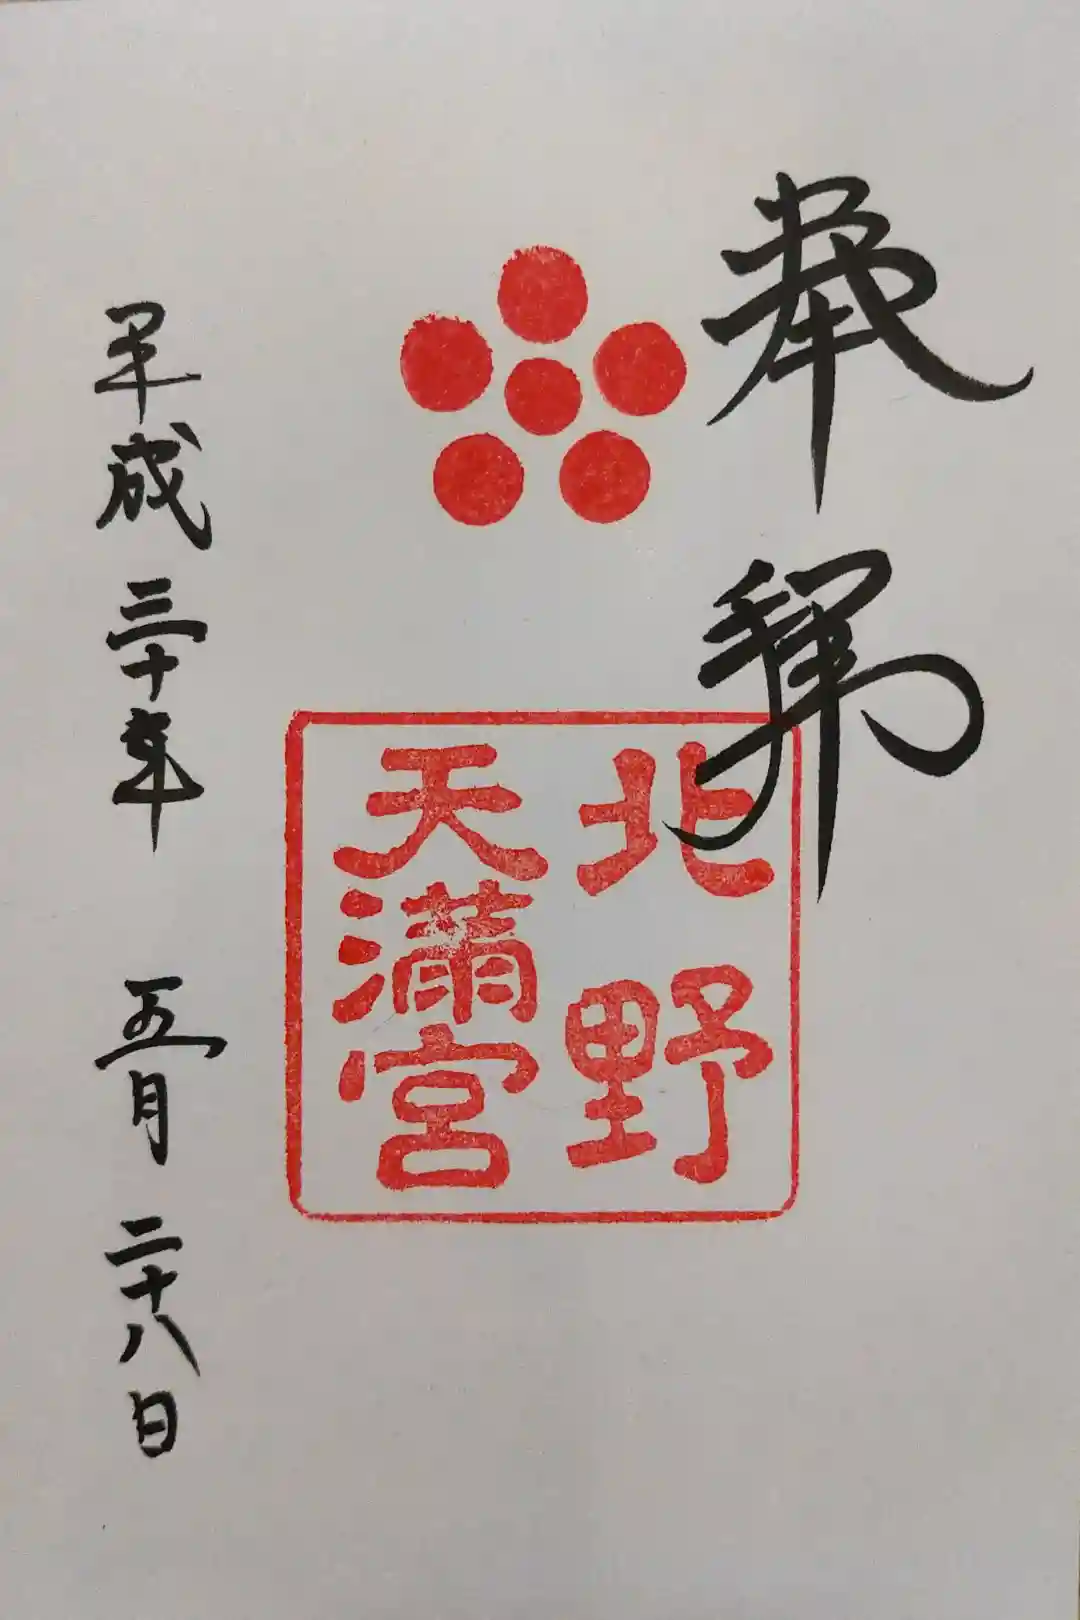 奉拜
北野
天満宮
平成三十年 五月 二十八日